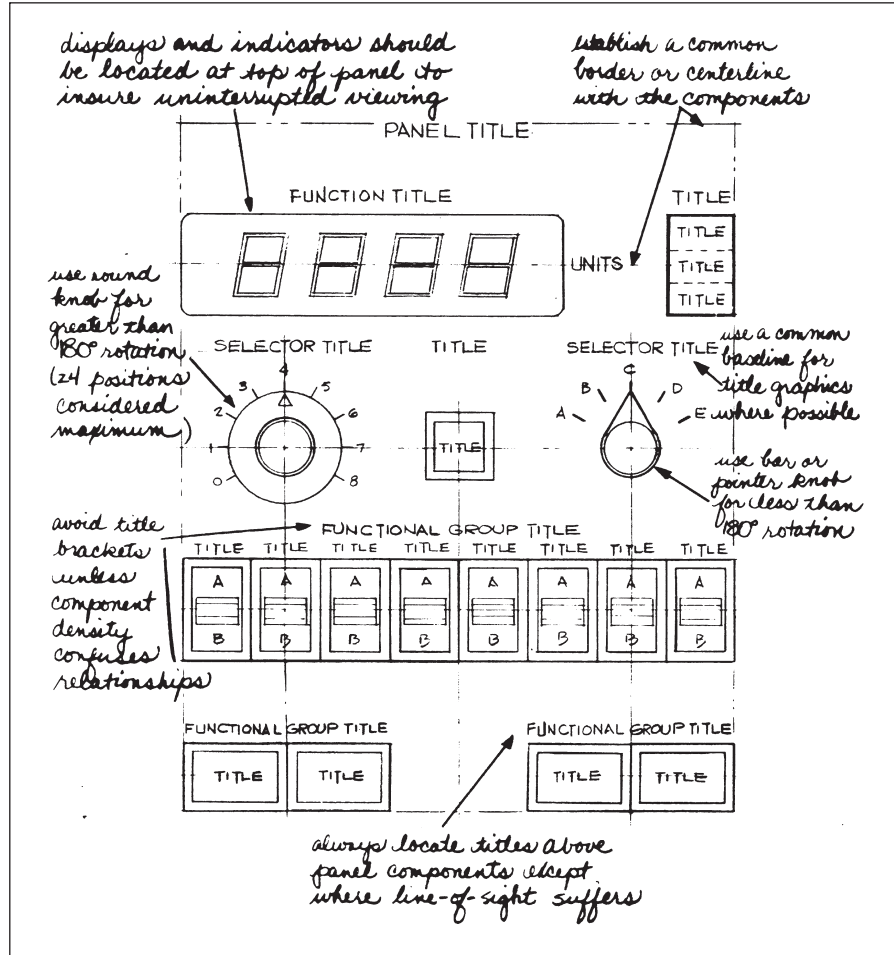 displays and indicators should
be located at top of panel to
insure uninterrupted viewing
establish a common
border or centerline
with the components
PANEL TITLE
FUNCTION TITLE
TITLE
TITLE
TITLE
TITLE
UNITS
use round
knob for
greater than
180° rotation
(24 positions
considered
maximum)
SELECTOR TITLE
0
1
2
3
4
5
6
7
8
TITLE
TITLE
SELECTOR TITLE
A
B
C
D
E
use a common
baseline for
title graphics
where possible
use bar or
pointer knob
for less than
180° rotation
avoid title
brackets
unless
component
density
confuses
relationships
FUNCTIONAL GROUP TITLE
TITLE TITLE TITLE TITLE TITLE TITLE TITLE TITLE
A A A A A A A A
B B B B B B B B
FUNCTIONAL GROUP TITLE
TITLE TITLE
FUNCTIONAL GROUP TITLE
TITLE TITLE
always locate titles above
panel components except
where line-of-sight suffers